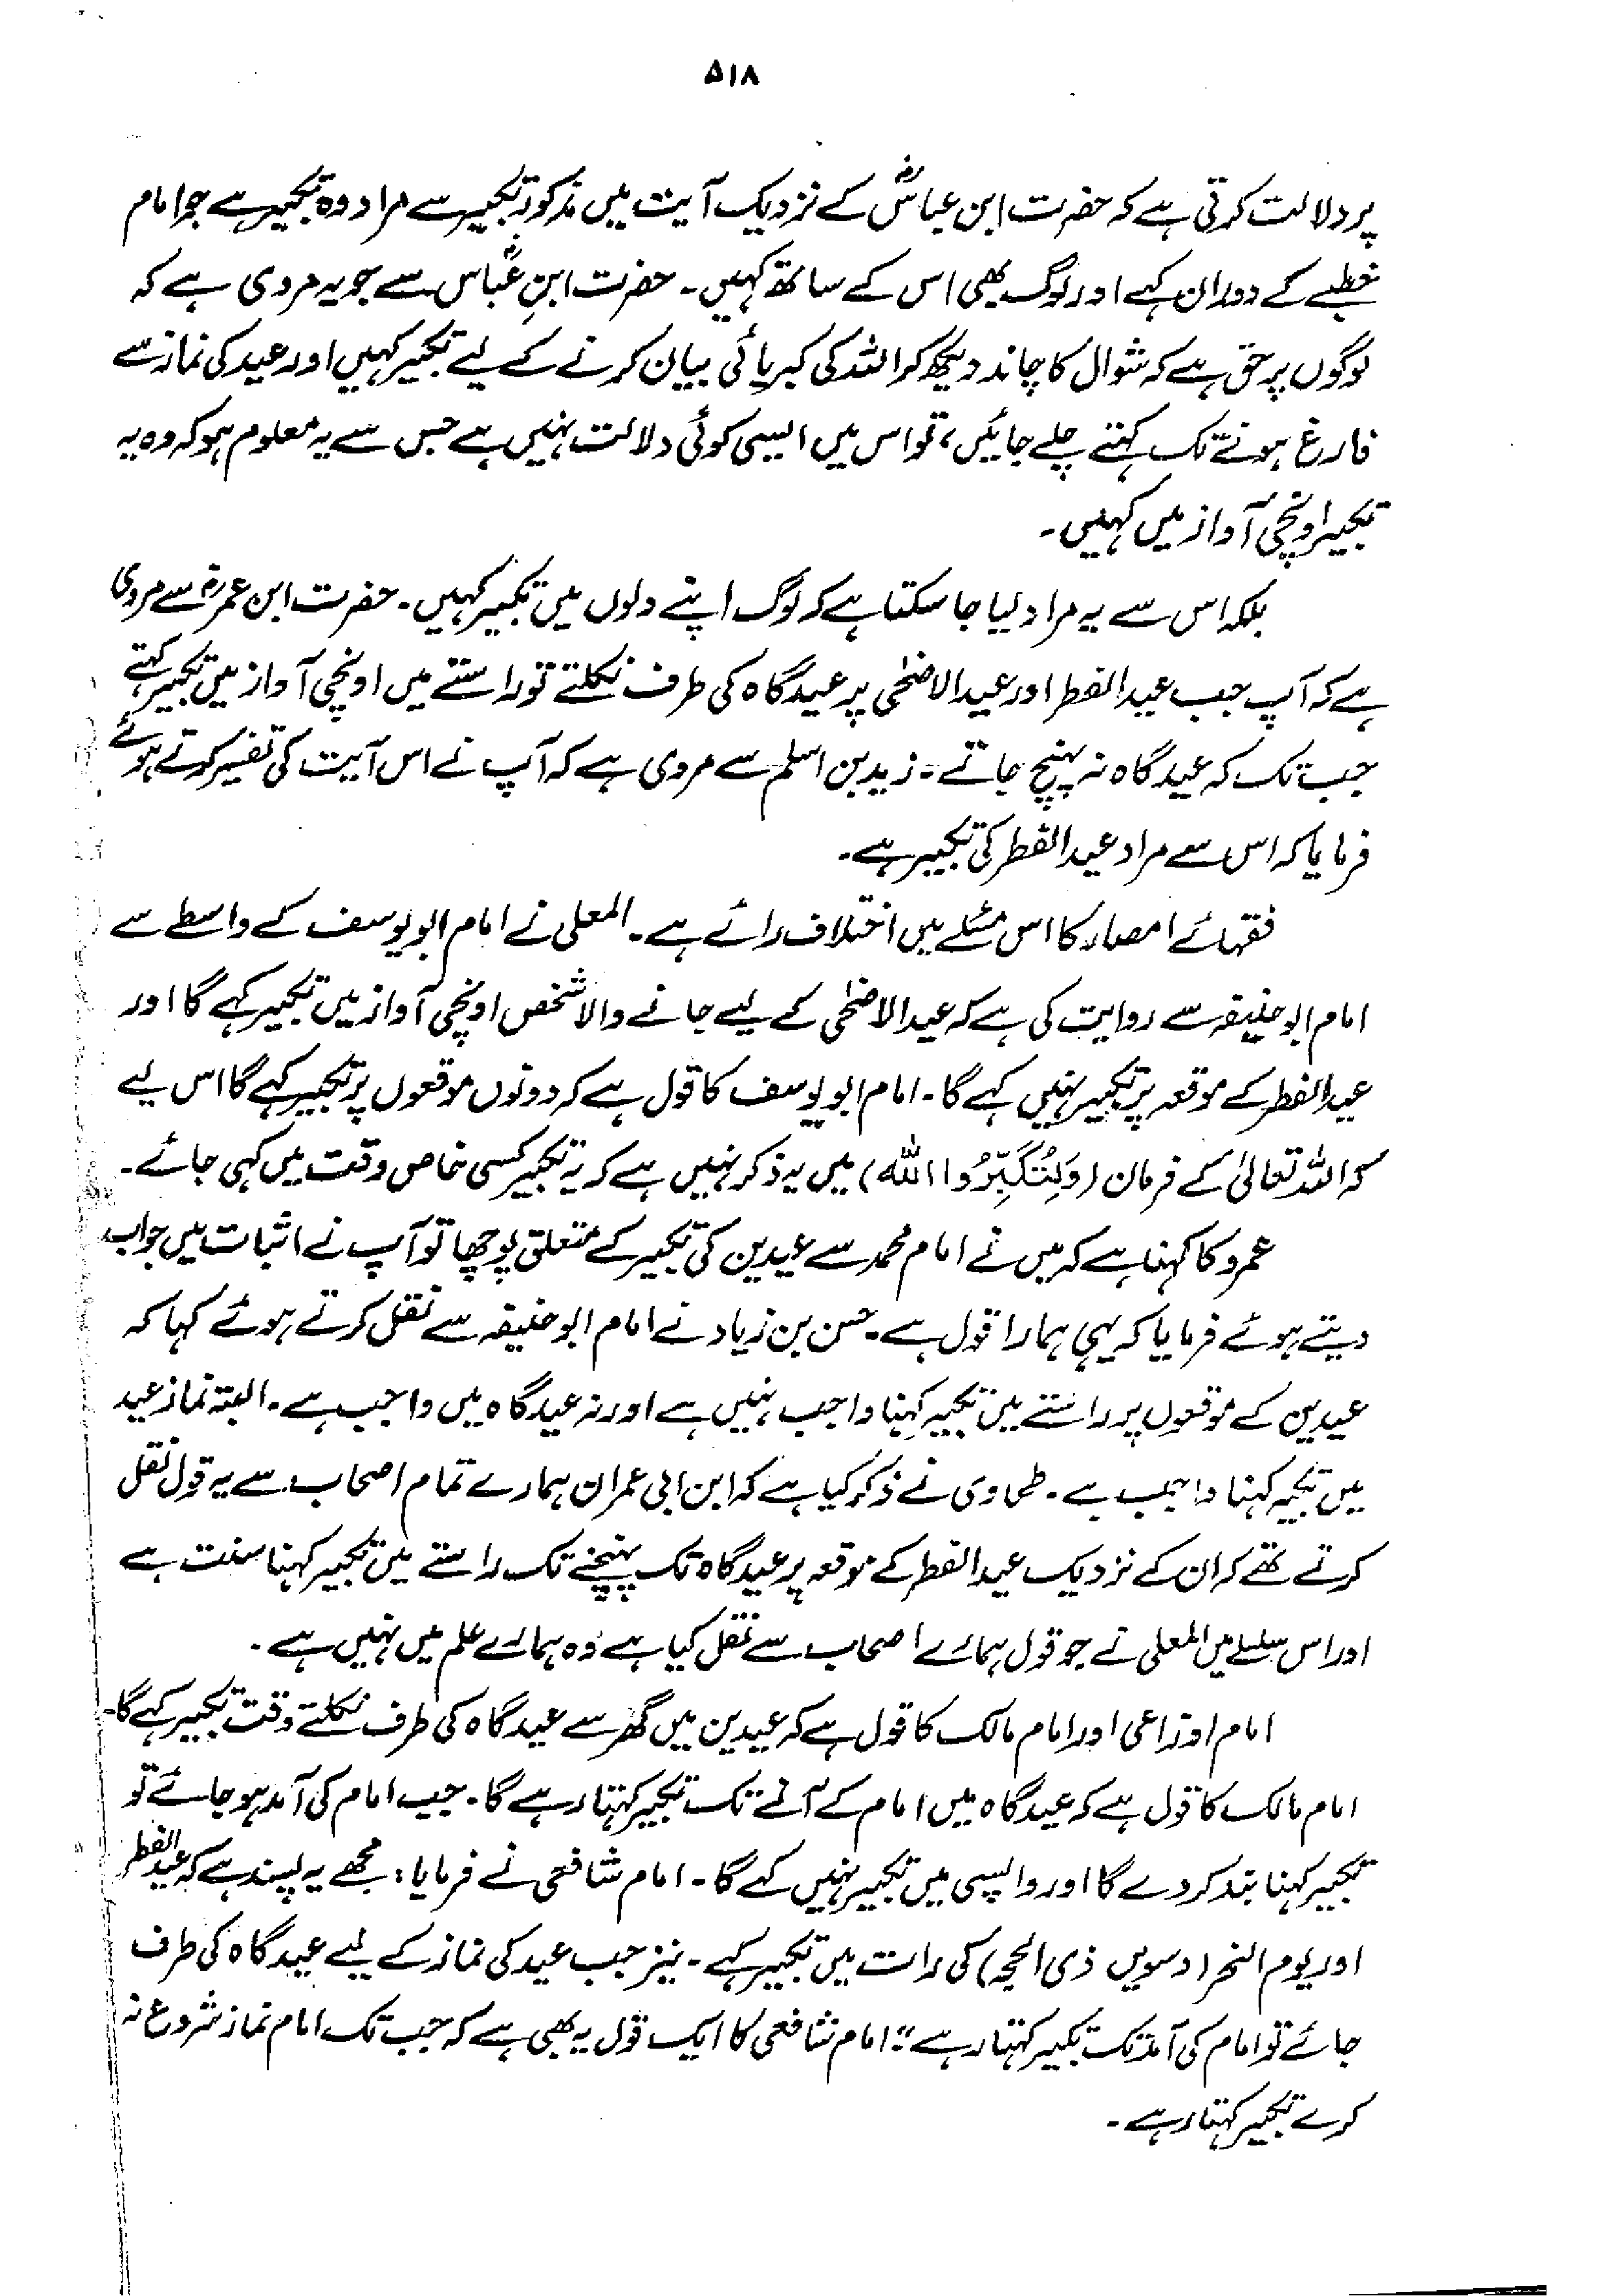 ۵۱۸
پر دلالت کرتی ہے کہ حضرت ابن عباسؓ کے نزدیک آیت میں مذکور تکبیر سے مراد وہ تکبیر ہے جو امام
خطبے کے دوران کہے اور لوگ بھی اس کے ساتھ کہیں۔ حضرت ابنِ عبّاس سے جو یہ مروی ہے کہ
لوگوں پر حق ہے کہ شوال کا چاند دیکھ کر اللہ کی کبریائی بیان کرنے کے لیے تکبیر کہیں اور عید کی نماز سے
فارغ ہونے تک کہتے چلے جائیں، تو اس میں ایسی کوئی دلالت نہیں ہے جس سے یہ معلوم ہو کہ وہ یہ
تکبیر اونچی آواز میں کہیں۔
بلکہ اس سے یہ مراد لیا جا سکتا ہے کہ لوگ اپنے دلوں میں تکبیر کہیں۔ حضرت ابن عمرؓ سے مروی
ہے کہ آپ جب عید الفطر اور عید الاضحٰی پر عید گاہ کی طرف نکلتے تو راستے میں اونچی آواز میں تکبیر کہتے
جب تک کہ عید گاہ نہ پہنچ جاتے۔ زید بن اسلم سے مروی ہے کہ آپ نے اس آیت کی تفسیر کرتے ہوئے
فرمایا کہ اس سے مراد عید الفطر کی تکبیر ہے۔
فقہائے امصار کا اس مسئلے میں اختلاف رائے ہے۔ المعلی نے امام ابو یوسف کے واسطے سے
امام ابو حنیفہ سے روایت کی ہے کہ عید الاضحٰی کے لیے جانے والا شخص اونچی آواز میں تکبیر کہے گا اور
عید الفطر کے موقعہ پر تکبیر نہیں کہے گا۔ امام ابو یوسف کا قول ہے کہ دونوں موقعوں پر تکبیر کہے گا اس لیے
کہ اللہ تعالیٰ کے فرمان (وَلِتُكَبِّرُوا اللهَ) میں یہ ذکر نہیں ہے کہ یہ تکبیر کسی خاص وقت میں کہی جائے۔
عمرو کا کہنا ہے کہ میں نے امام محمد سے عیدین کی تکبیر کے متعلق پوچھا تو آپ نے اثبات میں جواب
دیتے ہوئے فرمایا کہ یہی ہمارا قول ہے۔ حسن بن زیاد نے امام ابو حنیفہ سے نقل کرتے ہوئے کہا کہ
عیدین کے موقعوں پر راستے میں تکبیر کہنا واجب نہیں ہے اور نہ عید گاہ میں واجب ہے۔ البتہ نماز عید
میں تکبیر کہنا واجب ہے۔ طحاوی نے ذکر کیا ہے کہ ابن ابی عمران ہمارے تمام اصحاب سے یہ قول نقل
کرتے تھے کہ ان کے نزدیک عید الفطر کے موقعہ پر عید گاہ تک پہنچنے تک راستے میں تکبیر کہنا سنت ہے
اور اس سلسلے میں المعلی نے جو قول ہمارے اصحاب سے نقل کیا ہے وہ ہمارے علم میں نہیں ہے۔
امام اوزاعی اور امام مالک کا قول ہے کہ عیدین میں گھر سے عید گاہ کی طرف نکلتے وقت تکبیر کہے گا۔
امام مالک کا قول ہے کہ عید گاہ میں امام کے آنے تک تکبیر کہتا رہے گا۔ جب امام کی آمد ہو جائے تو
تکبیر کہنا بند کر دے گا اور واپسی میں تکبیر نہیں کہے گا۔ امام شافعی نے فرمایا: مجھے یہ پسند ہے کہ عید الفطر
اور یوم النحر (دسویں ذی الحجہ) کی رات میں تکبیر کہے۔ نیز جب عید کی نماز کے لیے عید گاہ کی طرف
جائے تو امام کی آمد تک تکبیر کہتا رہے"؛ امام شافعی کا ایک قول یہ بھی ہے کہ جب تک امام نماز شروع نہ
کرے تکبیر کہتا رہے۔